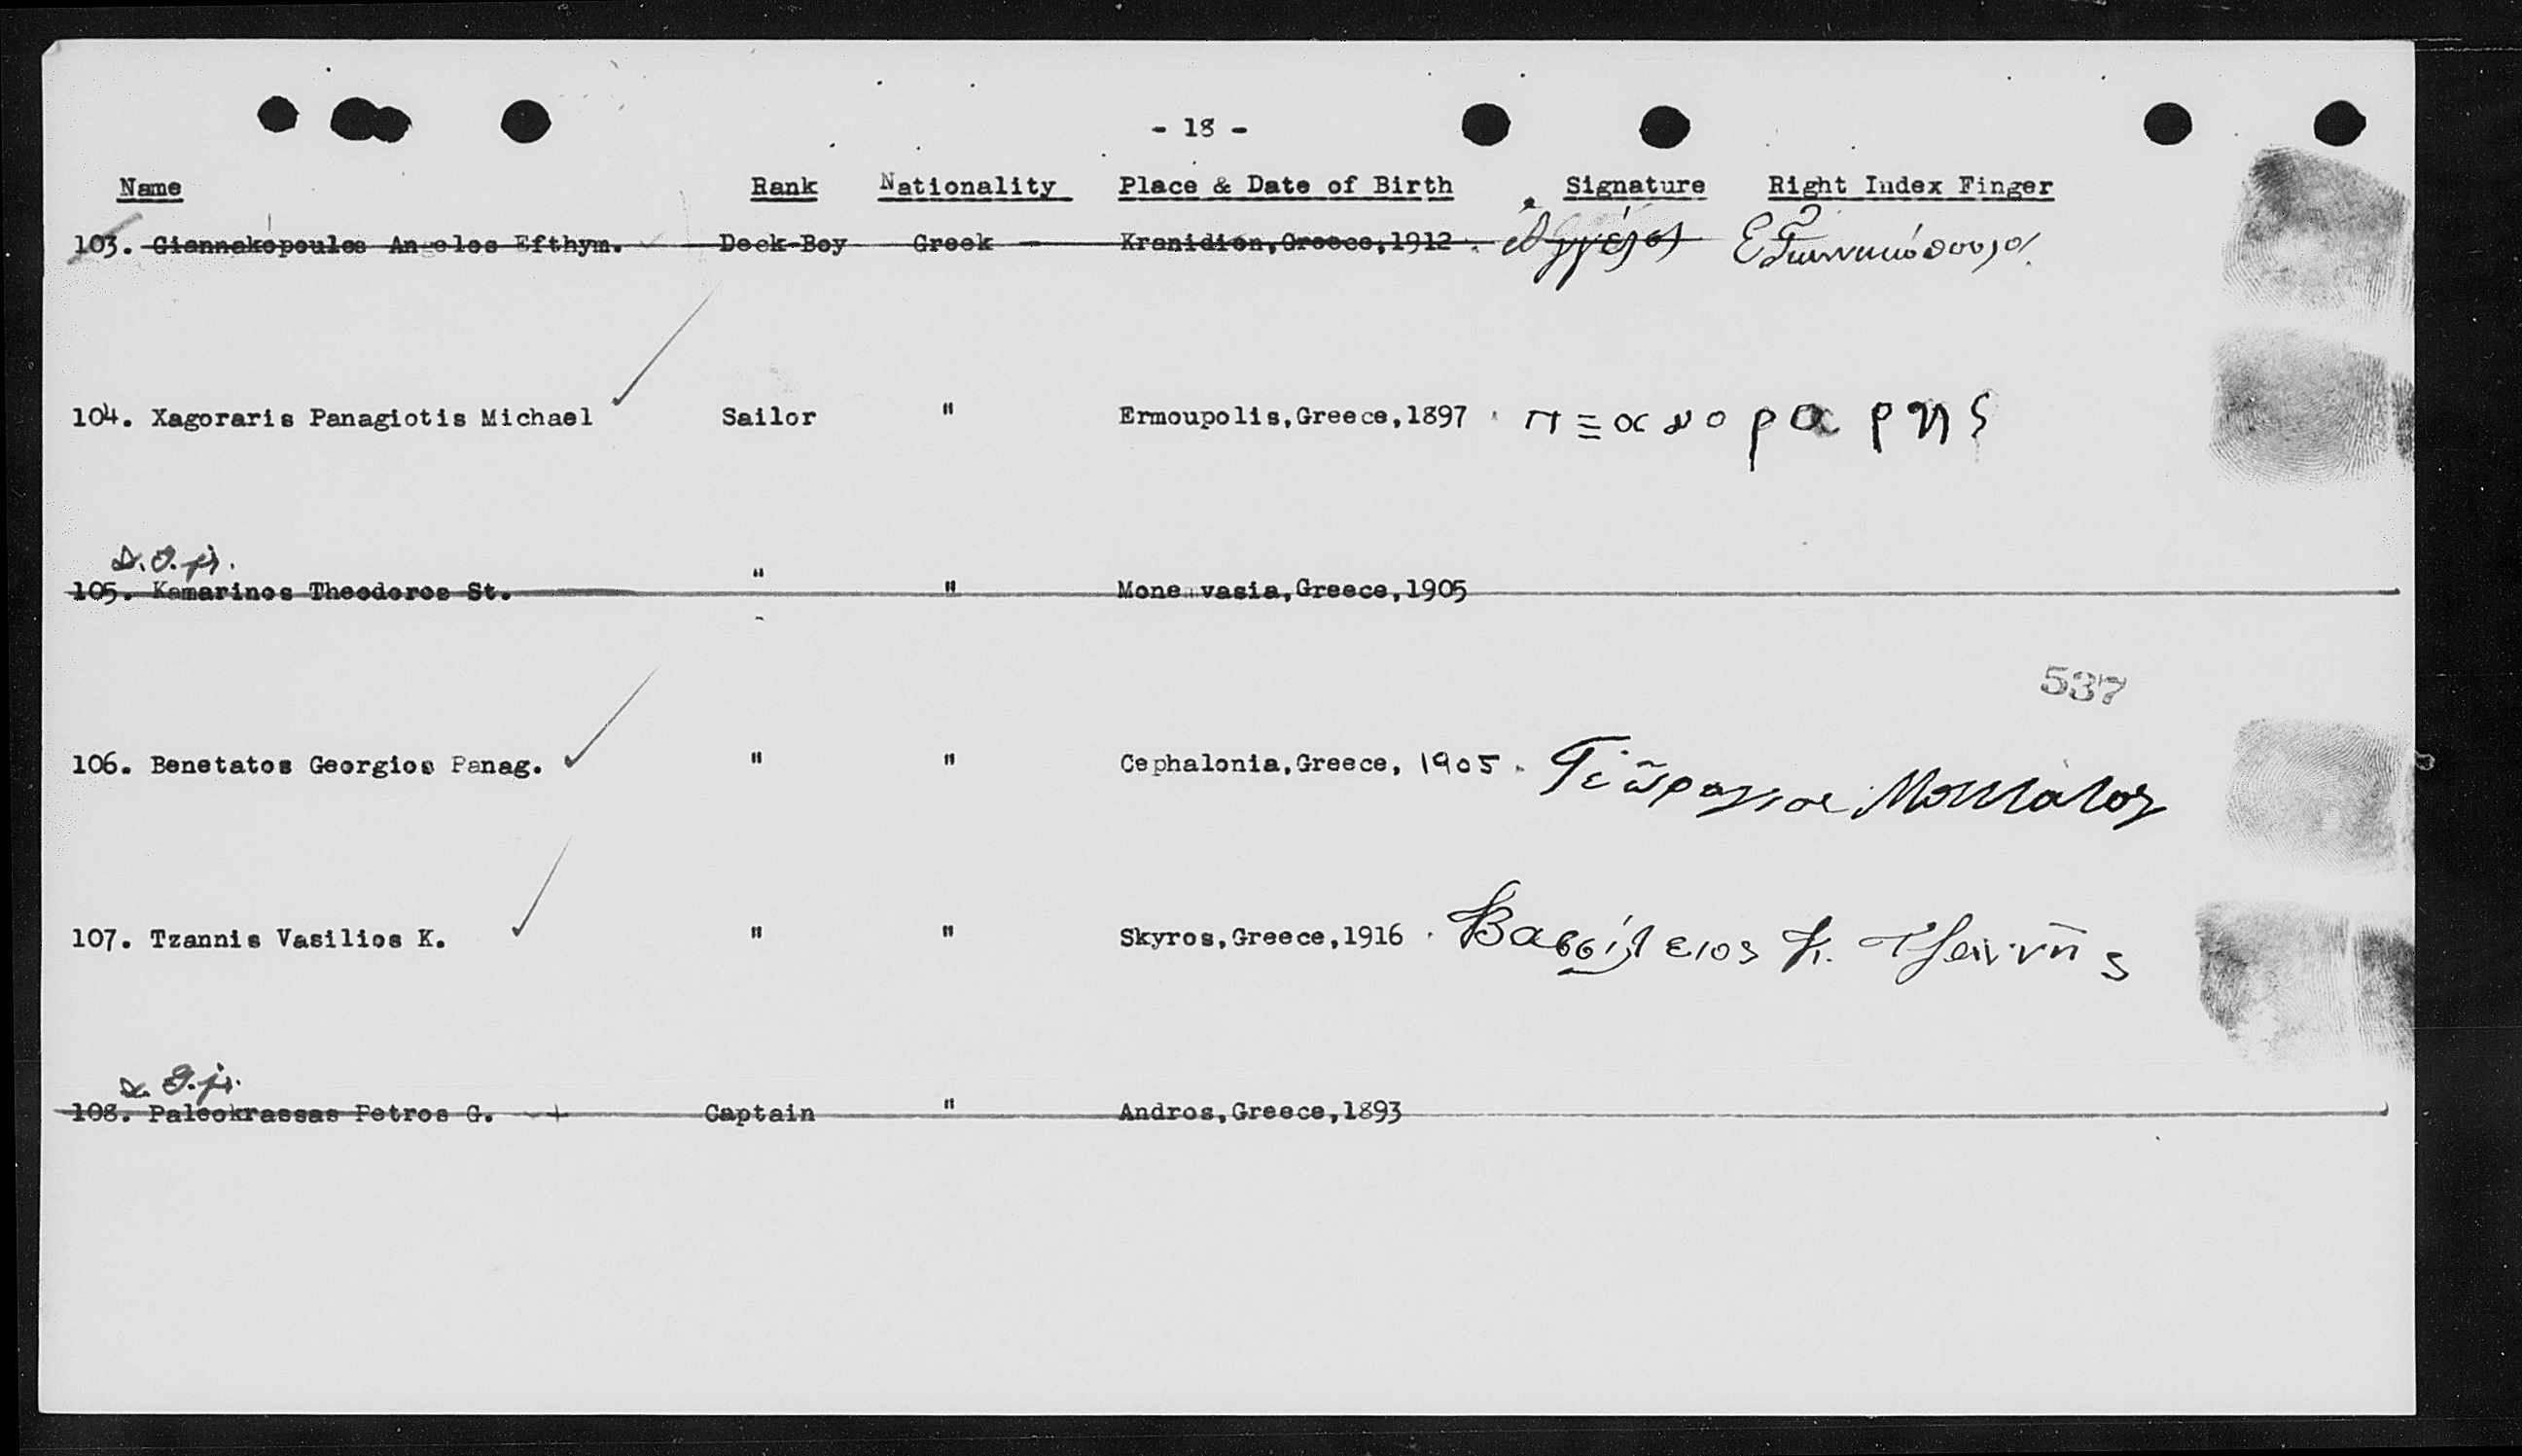 - 18 -
Name Rank Nationality Place & Date of Birth Signature Right Index Finger
103. Giannakopoulos An elos Efthym. Deck-Boy Greek Kranidion,Greece,1912. Αγγέλος Ε Γιαννακόπουλος
104. Xagoraris Panagiotis Michael Sailor " Ermoupolis,Greece,1897 π Ξ α γ ο ρ α ρ η ς
105. Kamarinos Theodoros St. " " Mone vasia,Greece,1905
537
106. Benetatos Georgios Panag. " " Cephalonia,Greece, 1905. Γεώραγιος
107. Tzannis Vasilios K. " " Skyros,Greece,1916 . Βασσίλειος Κ. Τζαννής
108. Paleokrassas Petros G. Captain " Andros,Greece,1893